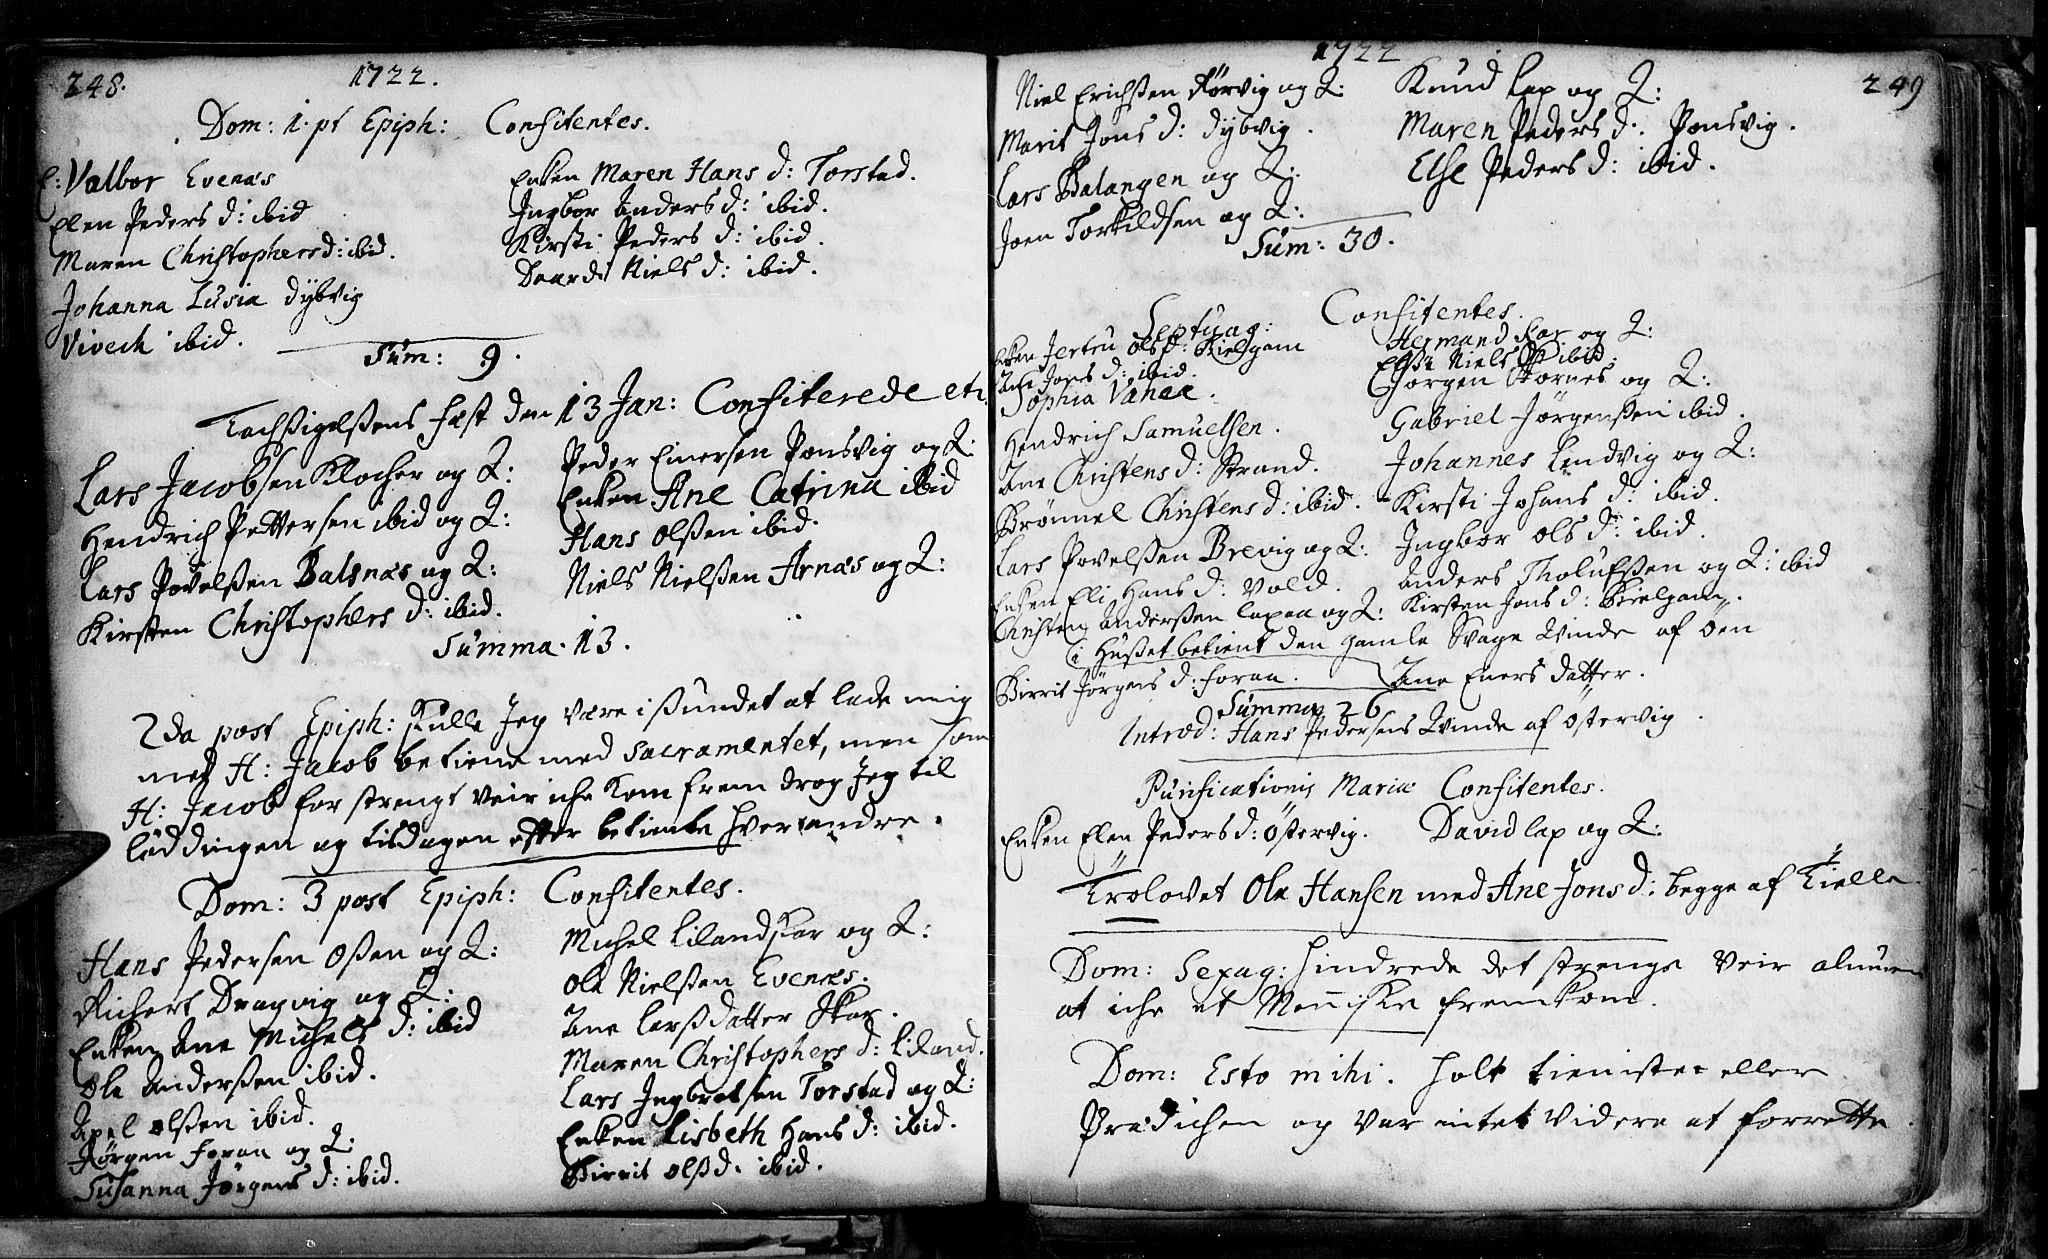 248.
1722.
Dom: 1. pt Epiph: Confitentes.
E: Valbor Evenæs
Elen Peders d: ibid
Maren Christophers d: ibid.
Johanna Lusia Dÿbvig
Vivech ibid.
Enken Maren Hans d: Torstad.
Jngbor Anders d: ibid.
Kirsti Peders d: ibid.
Daarde Niels d: ibid.
Sum: 9.
Tachsigelsens fæst den 13 Jan: Confiterede etc.
Lars Jacobsen Klocher og Q:
Hendrich Pettersen ibid og Q:
Lars Povelsen Balsnæs og Q:
Kirsten Christophers d: ibid.
Peder Einersen Ponsvig og Q:
Enken Ane Catrina ibid
Hans Olsen ibid.
Niels Nielsen Arnæs og Q:
Summa. 13.
2da post Epiph: skulle Jeg være i sundet at lade mig
med H: Jacob betiene med sacramentet, men som
H: Jacob for strengt veir iche kom frem drog Jeg til
løddingen og tisdagen efter betiente hver andre.
Dom: 3 post Epiph: Confitentes.
Hans Pedersen Osen og Q:
Richert Dragvig og Q:
Enken Ane Michels d: ibid
Ole Andersen ibid.
Axel Olsen ibid.
Jørgen foraa og Q:
Susanna Jørgens d: ibid.
Michel Lilandskar og Q:
Ole Nielsen Evenæs.
Ane Larsdatter Skar.
Maren Christophers d: Liland.
Lars Jngbretsen Torstad og Q:
Enken Lisbeth Hans d: ibid.
Birrit Ols d. ibid.
1722
249
Niel Erichsen Kørvig og Q:
Marit Jons d: Dÿbvig.
Lars Balangen og Q:
Joen Torkildsen og Q:
Knud Lap og Q:
Maren Peders d: Ponsvig.
Else Peders d: ibid.
Sum: 30.
Septuag: Confitentes.
Enken Jertru Ols d: Kielgam
Ane Jons d: ibid.
Sophia Vanaa.
Hendrich Samuelsen.
Ane Christens d: Strand.
Brønnel Christens d: ibid.
Lars Povelsen Brevig og Q:
Enken Eli Hans d: Vold.
Christen Andersen Laxaa og Q:
Hermand Skar og Q:
Else Niels d: ibid.
Jørgen Stornes og Q:
Gabriel Jørgensen ibid.
Johannes Lendvig og Q:
Kirsti Johans d: ibid.
Jngbor Ols d: ibid.
Anders Tholufsen og Q: ibid
Kirsten Jons d: Kielgam.
i Huset betient den gamle svage Qvinde af Øen
Birrit Jørgens d: foraa.
Ane Eners datter.
Summa 26
Introd: Hans Pedersens Qvinde af Østervig.
Purificationis Mariæ Confitentes.
Enken Elen Peders d: Østervig. David lap og Q:
Trolovet Ole Hansen med Ane Jons d: begge af Kielle
Dom: Sexag: hindrede det strenge veir almuen
at iche et Menniske fremkom.
Dom: Esto mihi. holt tieniste eller
Prædichen og var intet videre at forrette.